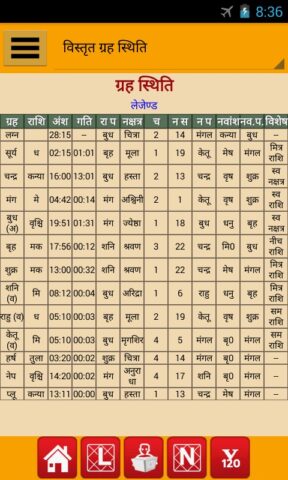 8:36
विस्तृत ग्रह स्थिति
ग्रह स्थिति
लेजेण्ड
ग्रह राशि अंश गति रा प नक्षत्र च न स न प नवांश न.व.प. विशेष
लग्न 28:15 -- बुध चित्रा 2 14 मंगल कन्या बुध --
सूर्य ध 02:15 01:01 बृह मूला 1 19 केतू मेष मंगल मित्र राशि
चन्द्र कन्या 16:00 13:01 बुध हस्ता 2 13 चन्द्र वृष शुक्र स्व नक्षत्र
मंग मे 04:42 00:14 मंग अश्विनी 2 1 केतू वृष शुक्र स्व राशि
बुध (अ) वृश्चि 19:51 01:31 मंग ज्येष्ठा 1 18 बुध धनु बृह --
बृह मक 17:56 00:12 शनि श्रवण 3 22 चन्द्र मि0 बुध नीच राशि
शुक्र मक 13:00 00:32 शनि श्रवण 1 22 चन्द्र मेष मंगल मित्र राशि
शनि (व) मि 08:12 00:04 बुध अरिद्रा 1 6 राहु धनु बृह मित्र राशि
राहु (व) ध 05:10 00:03 बृह मूला 2 19 केतू वृष शुक्र सम राशि
केतू (व) मि 05:10 00:03 बुध मृगशिर 4 5 मंगल बृ0 मंगल सम राशि
हर्ष तुला 03:20 00:02 शुक्र चित्रा 4 14 मंगल बृ0 मंगल --
नेप वृश्चि 14:20 00:02 मंग अनुराधा 4 17 शनि बृ0 मंगल --
प्लू कन्या 13:11 00:00 बुध हस्ता 1 13 चन्द्र मेष मंगल --
L N Y 120